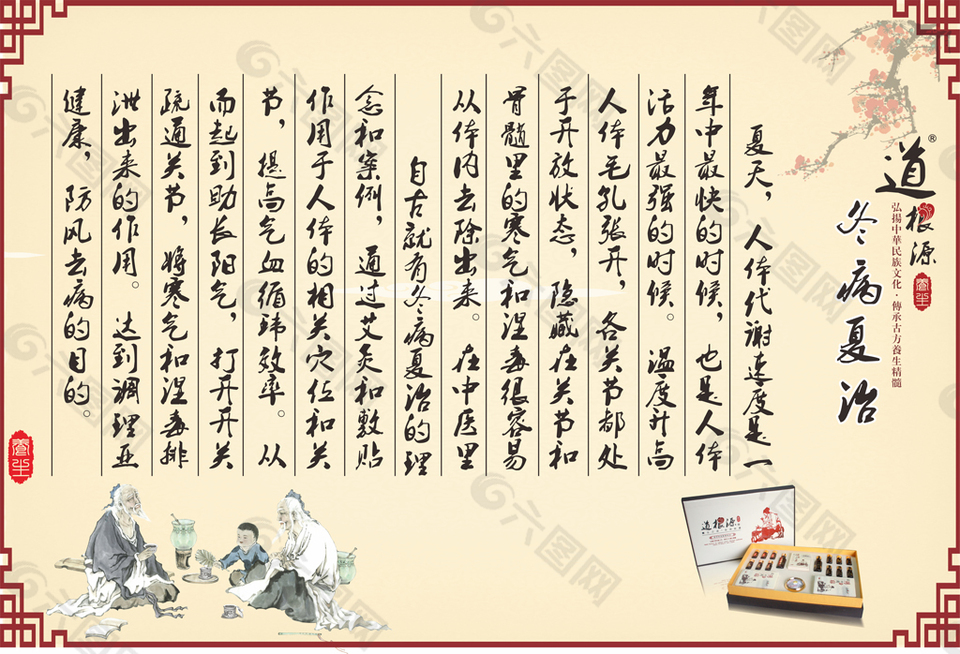 道根源®
弘揚中華民族文化·傳承古方養生精髓
養生
冬病夏治
夏天，人体代谢速度是一
年中最快的时候，也是人体
活力最强的时候。温度升高
人体毛孔张开，各关节都处
于开放状态，隐藏在关节和
骨髓里的寒气和湿毒很容易
从体内去除出来。在中医里
自古就有冬病夏治的理
念和案例，通过艾灸和敷贴
作用于人体的相关穴位和关
节，提高气血循环效率。从
而起到助长阳气，打开开关
疏通关节，将寒气和湿毒排
泄出来的作用。达到调理亚
健康，防风去病的目的。
養生
道根源
六图网